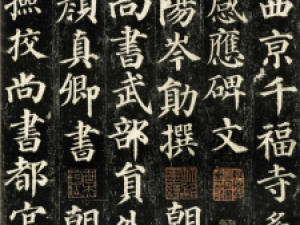 西京千福寺多
感應碑文
陽岑勛撰
尚書武部員外
顏真卿書
撿挍尚書都官